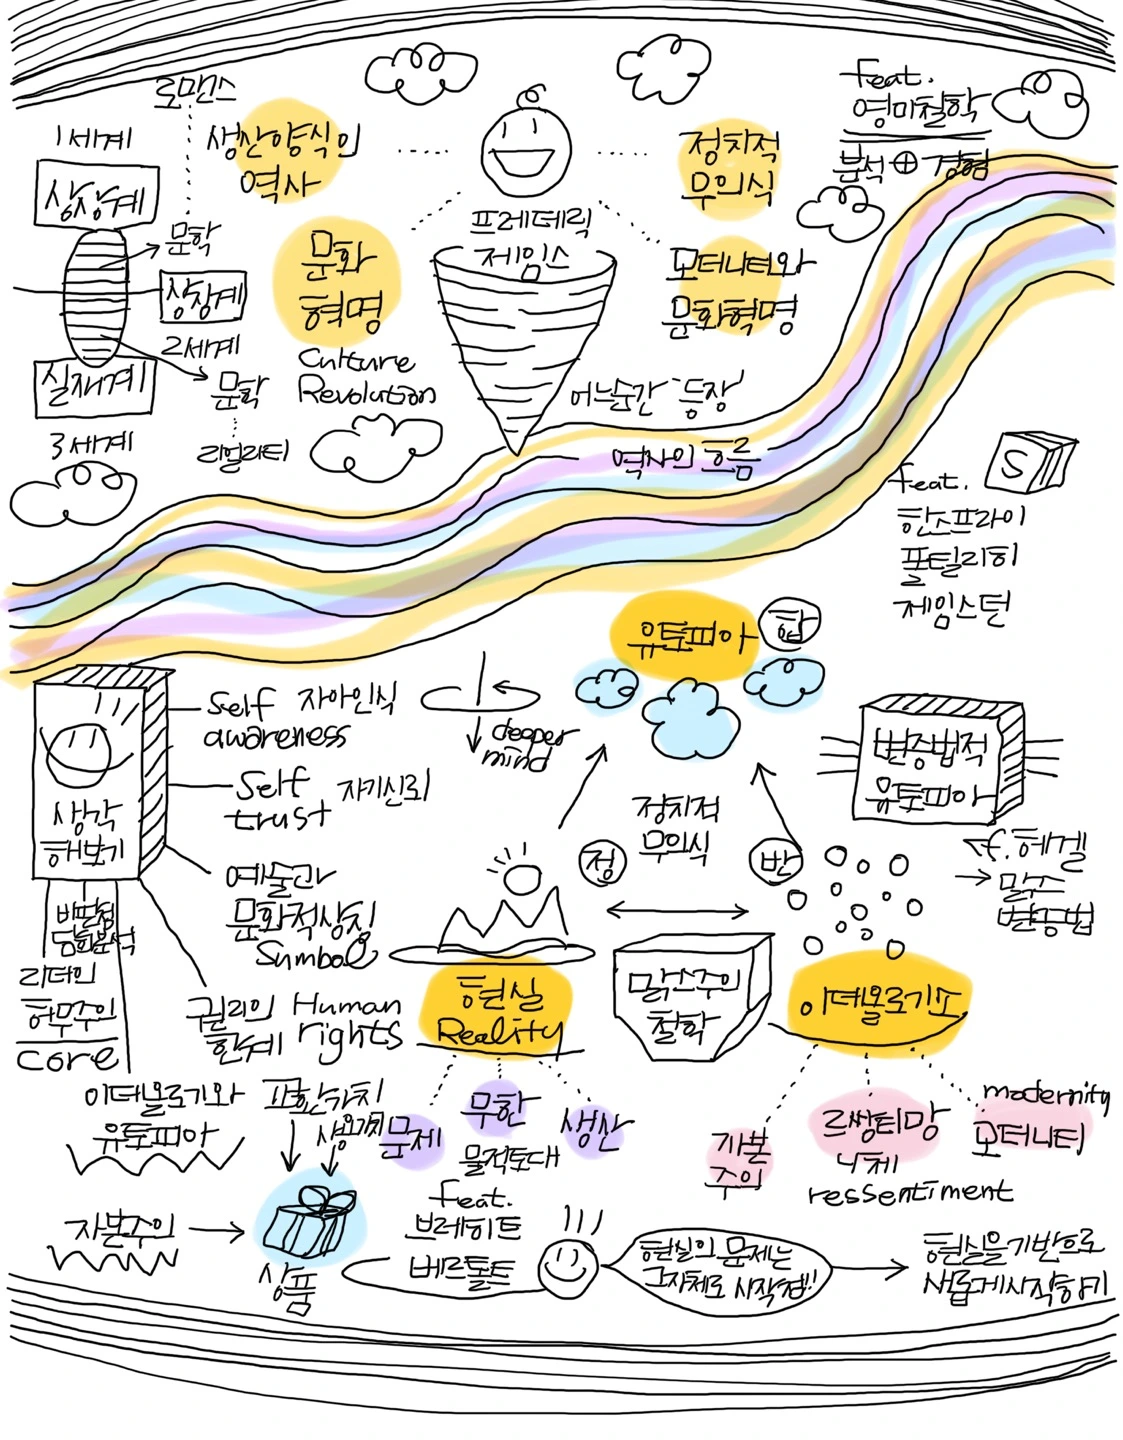 로맨스
1세계
상상계
문학
상징계
2세계
실재계
문학
3세계
리얼리티
생산양식의
역사
문화
혁명
Culture
Revolution
프레데릭
제임스
정치적
무의식
모더니티와
문화혁명
feat.
영미철학
분석 ⊕ 경험
어느순간 '등장'
역사의 흐름
S
feat.
한소프라이
폴틸리히
제임스턴
유토피아
합
생각
해보기
Self 자아인식
awareness
Self 자기신뢰
trust
예술과
문화적상징
Symbol
권리의 Human
한계 rights
리더인
허무주의
core
deeper
mind
정치적
무의식
정
반
변증법적
유토피아
cf. 헤겔
→ 맑스
변증법
현실
Reality
맑스주의
철학
이데올로기소
문제
무한
생산
물적토대
자본
주의
르쌍티망
니체
ressentiment
modernity
모더니티
이데올로기와
유토피아
교환가치
사용가치
자본주의
상품
feat.
브레히트
베르톨트
현실의 문제는
그자체로 시작점!!
현실을기반으로
새롭게시작하기